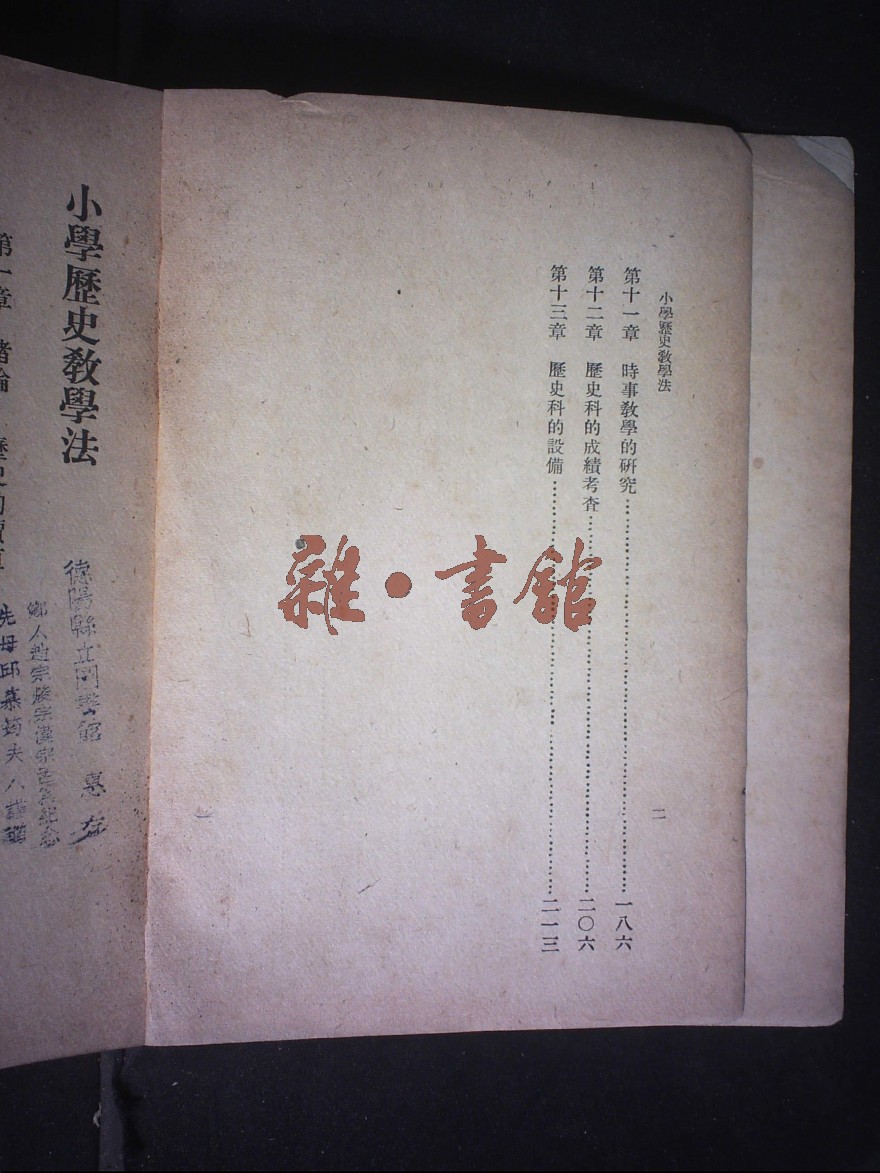 小學歷史教學法
二
第十一章 時事教學的研究………一八六
第十二章 歷史科的成績考查………二〇六
第十三章 歷史科的設備………二一三
雜·書館
小學歷史教學法
德陽縣立圖書館 惠存
第一章 緒論 歷史的價值
先母邱慕筠夫人